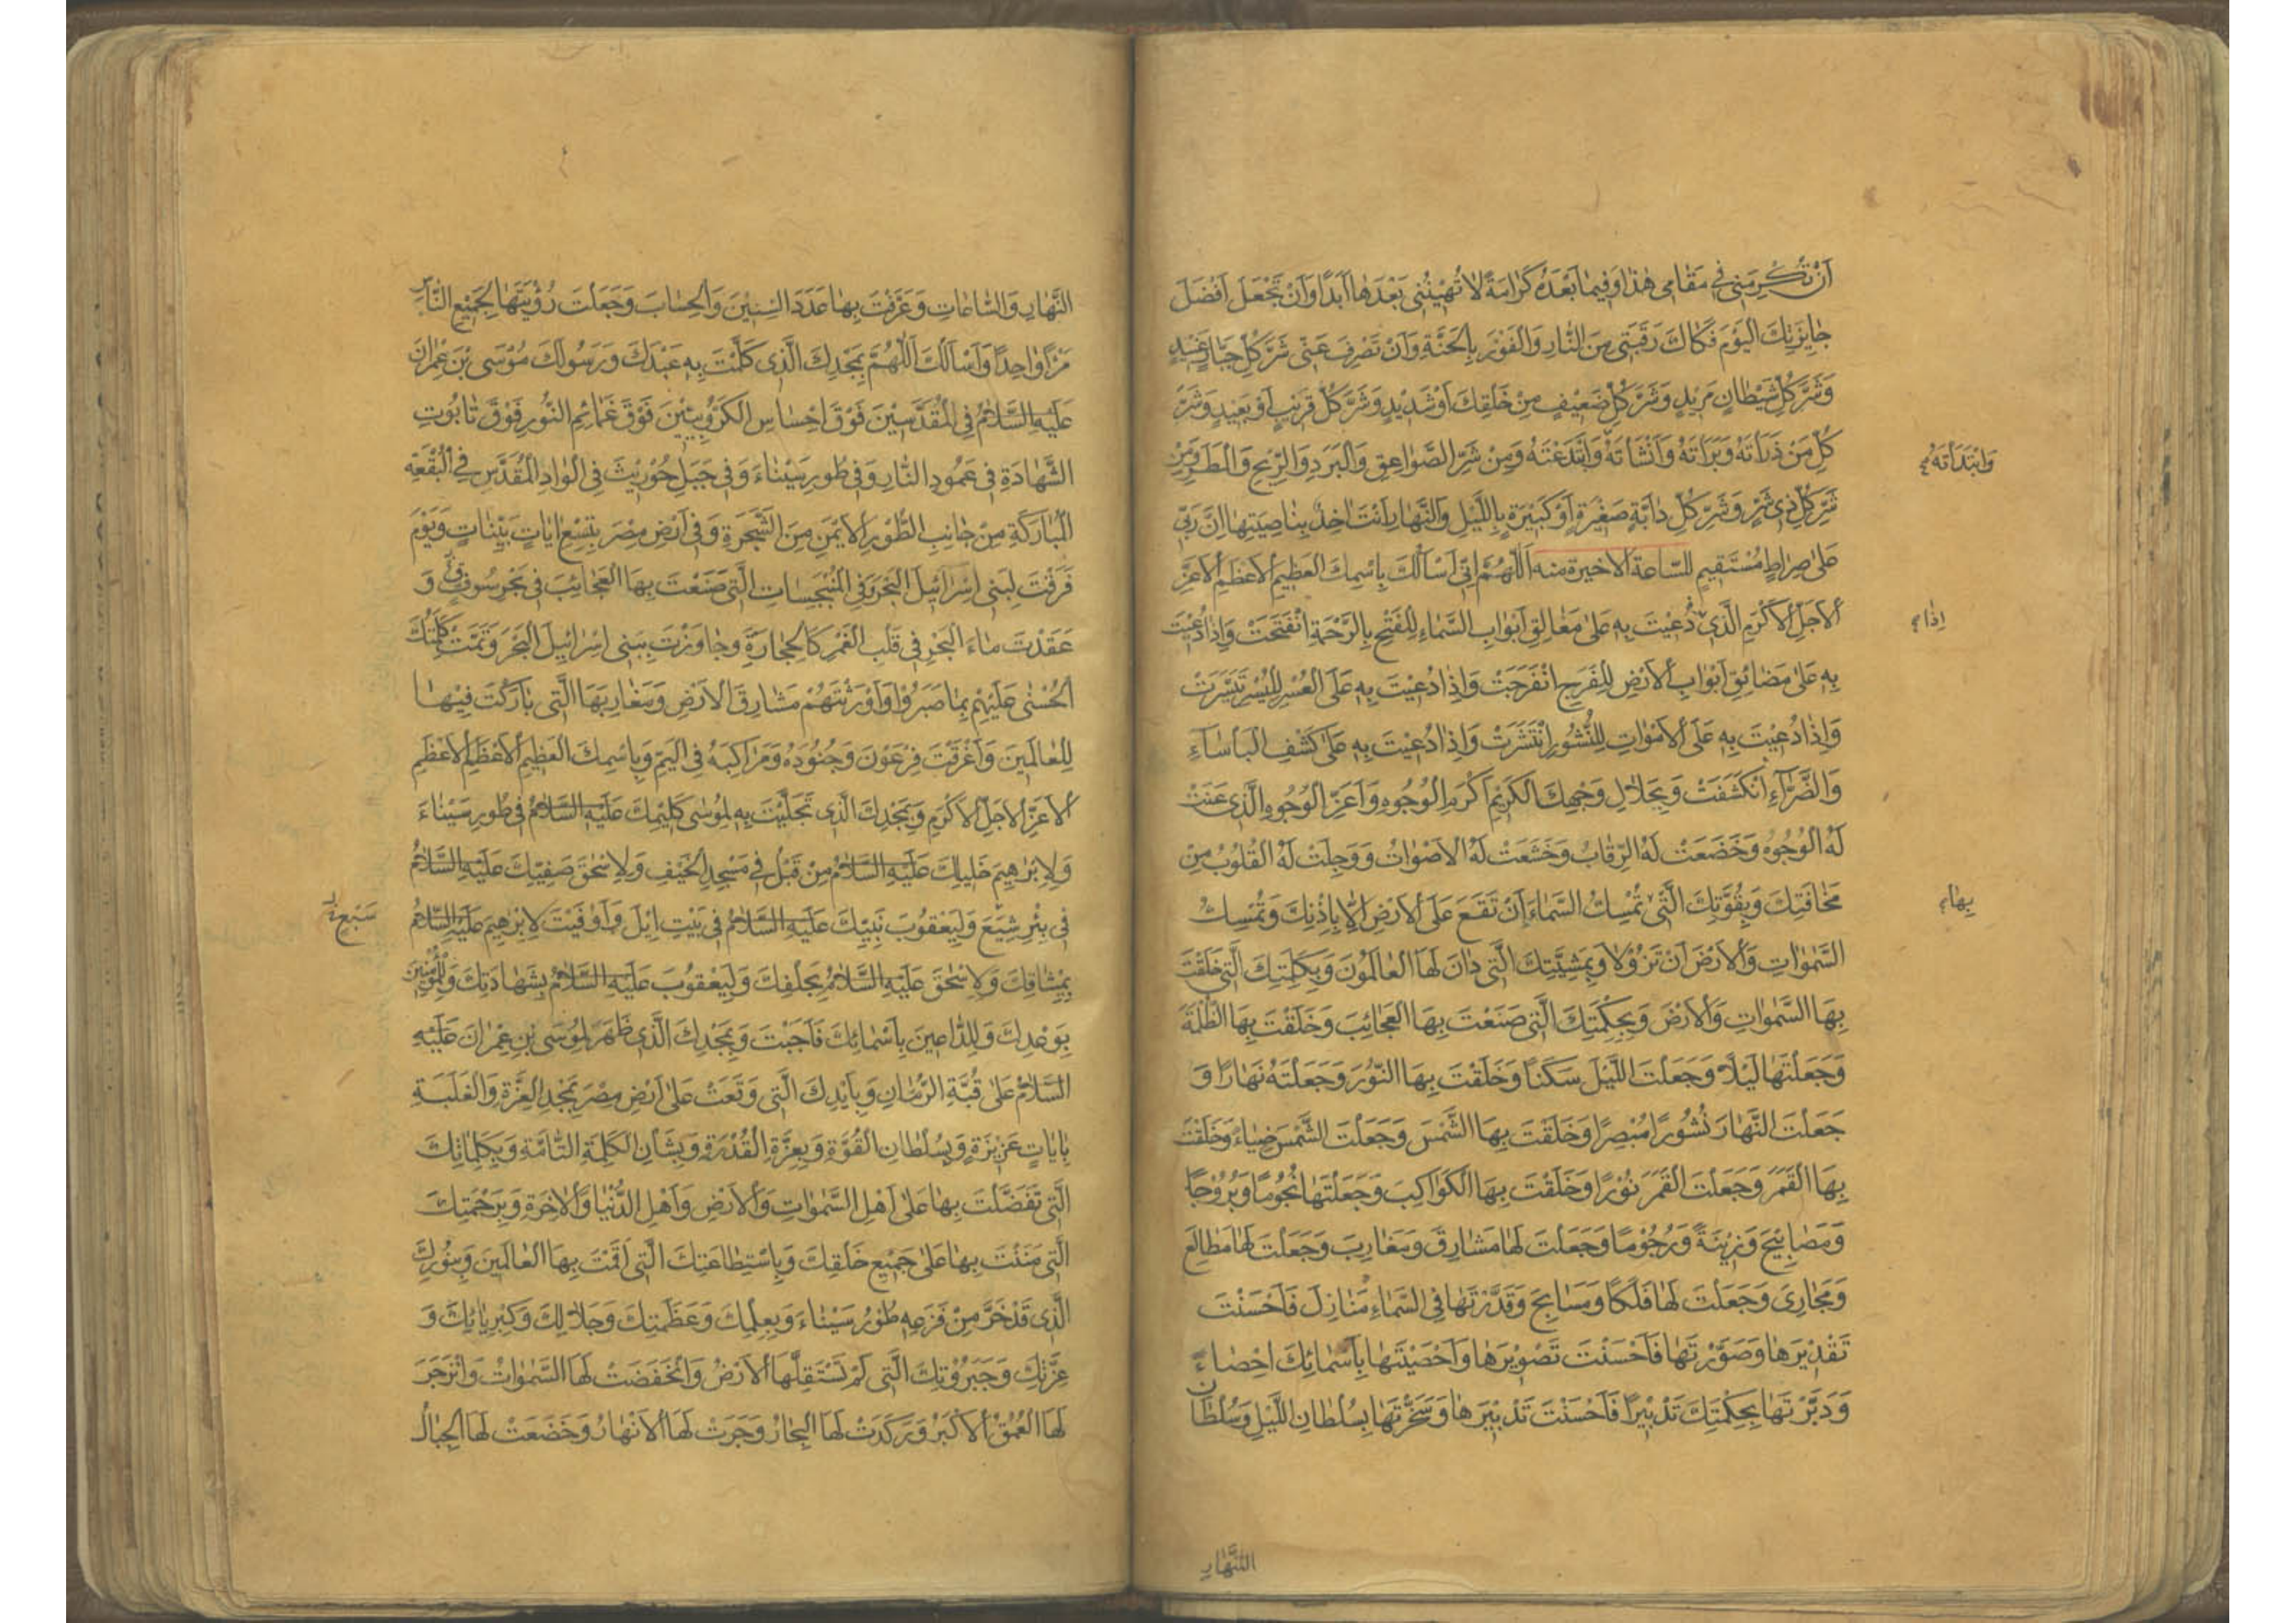 اَنْ تُكْرِمَنِي فِي مَقَامِي هٰذَا وَفِيمَا بَعْدَهُ كَرَامَةً لَا تُهِينُنِي بَعْدَهَا اَبَدًا وَاَنْ تَجْعَلَ اَفْضَلَ
جَايِزَتِكَ الْيَوْمَ فَكَاكَ رَقَبَتِي مِنَ النَّارِ وَالْفَوْزَ بِالْجَنَّةِ وَاَنْ تَصْرِفَ عَنِّي شَرَّ كُلِّ جَبَّارٍ عَنِيدٍ
وَشَرَّ كُلِّ شَيْطَانٍ مَرِيدٍ وَشَرَّ كُلِّ ضَعِيفٍ مِنْ خَلْقِكَ اَوْ شَدِيدٍ وَشَرَّ كُلِّ قَرِيبٍ اَوْ بَعِيدٍ وَشَرَّ
كُلِّ مَنْ ذَرَأتَهُ وَبَرَأتَهُ وَاَنْشَأتَهُ وَابْتَدَعْتَهُ وَمِنْ شَرِّ الصَّوَاعِقِ وَالْبَرَدِ وَالرِّيحِ وَالْمَطَرِ وَمِنْ
وَابْتَدَأتَهُ
شَرِّ كُلِّ ذِي شَرٍّ وَشَرِّ كُلِّ دَابَّةٍ صَغِيرَةٍ اَوْ كَبِيرَةٍ بِاللَّيْلِ وَالنَّهَارِ اَنْتَ اٰخِذٌ بِنَاصِيَتِهَا اِنَّ رَبِّي
عَلٰى صِرَاطٍ مُسْتَقِيمٍ للسّاعة الاخيرة منه اَللّٰهُمَّ اِنِّي اَسْاَلُكَ بِاسْمِكَ الْعَظِيمِ الْاَعْظَمِ الْاَعَزِّ
الْاَجَلِّ الْاَكْرَمِ الَّذِي دُعِيتَ بِهِ عَلٰى مَغَالِقِ اَبْوَابِ السَّمَاءِ لِلْفَتْحِ بِالرَّحْمَةِ انْفَتَحَتْ وَاِذَا دُعِيتَ
اِذَا
بِهِ عَلٰى مَضَائِقِ اَبْوَابِ الْاَرْضِ لِلْفَرَجِ انْفَرَجَتْ وَاِذَا دُعِيتَ بِهِ عَلَى الْعُسْرِ لِلْيُسْرِ تَيَسَّرَتْ
وَاِذَا دُعِيتَ بِهِ عَلَى الْاَمْوَاتِ لِلنُّشُورِ انْتَشَرَتْ وَاِذَا دُعِيتَ بِهِ عَلٰى كَشْفِ الْبَأسَاءِ
وَالضَّرَّاءِ انْكَشَفَتْ وَبِجَلَالِ وَجْهِكَ الْكَرِيمِ اَكْرَمِ الْوُجُوهِ وَاَعَزِّ الْوُجُوهِ الَّذِي عَنَتْ
لَهُ الْوُجُوهُ وَخَضَعَتْ لَهُ الرِّقَابُ وَخَشَعَتْ لَهُ الْاَصْوَاتُ وَوَجِلَتْ لَهُ الْقُلُوبُ مِنْ
مَخَافَتِكَ وَبِقُوَّتِكَ الَّتِي تُمْسِكُ السَّمَاءَ اَنْ تَقَعَ عَلَى الْاَرْضِ اِلَّا بِاِذْنِكَ وَتُمْسِكُ
بِهَا
السَّمٰوَاتِ وَالْاَرْضَ اَنْ تَزُولَا وَبِمَشِيَّتِكَ الَّتِي دَانَ لَهَا الْعَالَمُونَ وَبِكَلِمَتِكَ الَّتِي خَلَقْتَ
بِهَا السَّمٰوَاتِ وَالْاَرْضَ وَبِحِكْمَتِكَ الَّتِي صَنَعْتَ بِهَا الْعَجَائِبَ وَخَلَقْتَ بِهَا الظُّلْمَةَ
وَجَعَلْتَهَا لَيْلًا وَجَعَلْتَ اللَّيْلَ سَكَنًا وَخَلَقْتَ بِهَا النُّورَ وَجَعَلْتَهُ نَهَارًا وَ
جَعَلْتَ النَّهَارَ نُشُورًا مُبْصِرًا وَخَلَقْتَ بِهَا الشَّمْسَ وَجَعَلْتَ الشَّمْسَ ضِيَاءً وَخَلَقْتَ
بِهَا الْقَمَرَ وَجَعَلْتَ الْقَمَرَ نُورًا وَخَلَقْتَ بِهَا الْكَوَاكِبَ وَجَعَلْتَهَا نُجُومًا وَبُرُوجًا
وَمَصَابِيحَ وَزِينَةً وَرُجُومًا وَجَعَلْتَ لَهَا مَشَارِقَ وَمَغَارِبَ وَجَعَلْتَ لَهَا مَطَالِعَ
وَمَجَارِيَ وَجَعَلْتَ لَهَا فَلَكًا وَمَسَابِحَ وَقَدَّرْتَهَا فِي السَّمَاءِ مَنَازِلَ فَاَحْسَنْتَ
تَقْدِيرَهَا وَصَوَّرْتَهَا فَاَحْسَنْتَ تَصْوِيرَهَا وَاَحْصَيْتَهَا بِاَسْمَائِكَ اِحْصَاءً
وَدَبَّرْتَهَا بِحِكْمَتِكَ تَدْبِيرًا فَاَحْسَنْتَ تَدْبِيرَهَا وَسَخَّرْتَهَا بِسُلْطَانِ اللَّيْلِ وَسُلْطَانِ
النَّهَارِ
النَّهَارِ وَالسَّاعَاتِ وَعَرَّفْتَ بِهَا عَدَدَ السِّنِينَ وَالْحِسَابَ وَجَعَلْتَ رُؤْيَتَهَا لِجَمِيعِ النَّاسِ
مَرْأً وَاحِدًا وَاَسْاَلُكَ اللّٰهُمَّ بِمَجْدِكَ الَّذِي كَلَّمْتَ بِهِ عَبْدَكَ وَرَسُولَكَ مُوسَى بْنَ عِمْرَانَ
عَلَيْهِ السَّلَامُ فِي الْمُقَدَّسِينَ فَوْقَ اِحْسَاسِ الْكَرُّوبِيِّينَ فَوْقَ غَمَائِمِ النُّورِ فَوْقَ تَابُوتِ
الشَّهَادَةِ فِي عَمُودِ النَّارِ وَفِي طُورِ سَيْنَاءَ وَفِي جَبَلِ حُورِيثَ فِي الْوَادِ الْمُقَدَّسِ فِي الْبُقْعَةِ
الْمُبَارَكَةِ مِنْ جَانِبِ الطُّورِ الْاَيْمَنِ مِنَ الشَّجَرَةِ وَفِي اَرْضِ مِصْرَ بِتِسْعِ اٰيَاتٍ بَيِّنَاتٍ وَيَوْمَ
فَرَقْتَ لِبَنِي اِسْرَائِيلَ الْبَحْرَ وَفِي الْمُنْبَجِسَاتِ الَّتِي صَنَعْتَ بِهَا الْعَجَائِبَ فِي بَحْرِ سُوفٍ وَ
عَقَدْتَ مَاءَ الْبَحْرِ فِي قَلْبِ الْغَمْرِ كَالْحِجَارَةِ وَجَاوَزْتَ بِبَنِي اِسْرَائِيلَ الْبَحْرَ وَتَمَّتْ كَلِمَتُكَ
الْحُسْنٰى عَلَيْهِمْ بِمَا صَبَرُوا وَاَوْرَثْتَهُمْ مَشَارِقَ الْاَرْضِ وَمَغَارِبَهَا الَّتِي بَارَكْتَ فِيهَا
لِلْعَالَمِينَ وَاَغْرَقْتَ فِرْعَوْنَ وَجُنُودَهُ وَمَرَاكِبَهُ فِي الْيَمِّ وَبِاسْمِكَ الْعَظِيمِ الْاَعْظَمِ الْاَعْظَمِ
الْاَعَزِّ الْاَجَلِّ الْاَكْرَمِ وَبِمَجْدِكَ الَّذِي تَجَلَّيْتَ بِهِ لِمُوسٰى كَلِيمِكَ عَلَيْهِ السَّلَامُ فِي طُورِ سَيْنَاءَ
وَلِاِبْرٰهِيمَ خَلِيلِكَ عَلَيْهِ السَّلَامُ مِنْ قَبْلُ فِي مَسْجِدِ الْخَيْفِ وَلِاِسْحٰقَ صَفِيِّكَ عَلَيْهِ السَّلَامُ
فِي بِئْرِ شِيَعَ وَلِيَعْقُوبَ نَبِيِّكَ عَلَيْهِ السَّلَامُ فِي بَيْتِ اِيْلَ وَاَوْفَيْتَ لِاِبْرٰهِيمَ عَلَيْهِ السَّلَامُ
سَبْعٍ
بِمِيثَاقِكَ وَلِاِسْحٰقَ عَلَيْهِ السَّلَامُ بِحَلْفِكَ وَلِيَعْقُوبَ عَلَيْهِ السَّلَامُ بِشَهَادَتِكَ وَلِلْمُؤْمِنِينَ
بِوَعْدِكَ وَلِلدَّاعِينَ بِاَسْمَائِكَ فَاَجَبْتَ وَبِمَجْدِكَ الَّذِي ظَهَرَ لِمُوسَى بْنِ عِمْرَانَ عَلَيْهِ
السَّلَامُ عَلٰى قُبَّةِ الرُّمَّانِ وَبِاَيْدِكَ الَّتِي وَقَعَتْ عَلٰى اَرْضِ مِصْرَ بِمَجْدِ الْعِزَّةِ وَالْغَلَبَةِ
بِاٰيَاتٍ عَزِيزَةٍ وَبِسُلْطَانِ الْقُوَّةِ وَبِعِزَّةِ الْقُدْرَةِ وَبِشَأنِ الْكَلِمَةِ التَّامَّةِ وَبِكَلِمَاتِكَ
الَّتِي تَفَضَّلْتَ بِهَا عَلٰى اَهْلِ السَّمٰوَاتِ وَالْاَرْضِ وَاَهْلِ الدُّنْيَا وَالْاٰخِرَةِ وَبِرَحْمَتِكَ
الَّتِي مَنَنْتَ بِهَا عَلٰى جَمِيعِ خَلْقِكَ وَبِاسْتِطَاعَتِكَ الَّتِي اَقَمْتَ بِهَا الْعَالَمِينَ وَبِنُورِكَ
الَّذِي قَدْ خَرَّ مِنْ فَزَعِهِ طُورُ سَيْنَاءَ وَبِعِلْمِكَ وَعَظَمَتِكَ وَجَلَالِكَ وَكِبْرِيَائِكَ وَ
عِزَّتِكَ وَجَبَرُوتِكَ الَّتِي لَمْ تَسْتَقِلَّهَا الْاَرْضُ وَانْخَفَضَتْ لَهَا السَّمٰوَاتُ وَانْزَجَرَ
لَهَا الْعُمْقُ الْاَكْبَرُ وَرَكَدَتْ لَهَا الْبِحَارُ وَجَرَتْ لَهَا الْاَنْهَارُ وَخَضَعَتْ لَهَا الْجِبَالُ